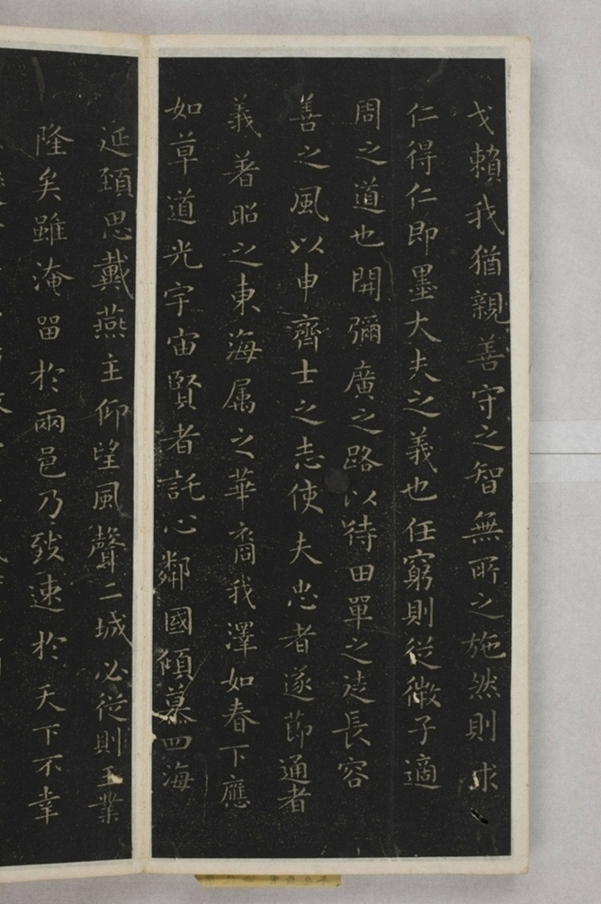 戈賴我猶親善守之智無所之施然則求
仁得仁即墨大夫之義也任窮則從微子適
周之道也開彌廣之路以待田單之徒長容
善之風以申齊士之志使夫忠者遂節通者
義著昭之東海属之華裔我澤如春下應
如草道光宇宙賢者託心鄰國傾慕四海
延頚思戴燕主仰望風聲二城必從則王業
隆矣雖淹留於兩邑乃致速於天下不幸